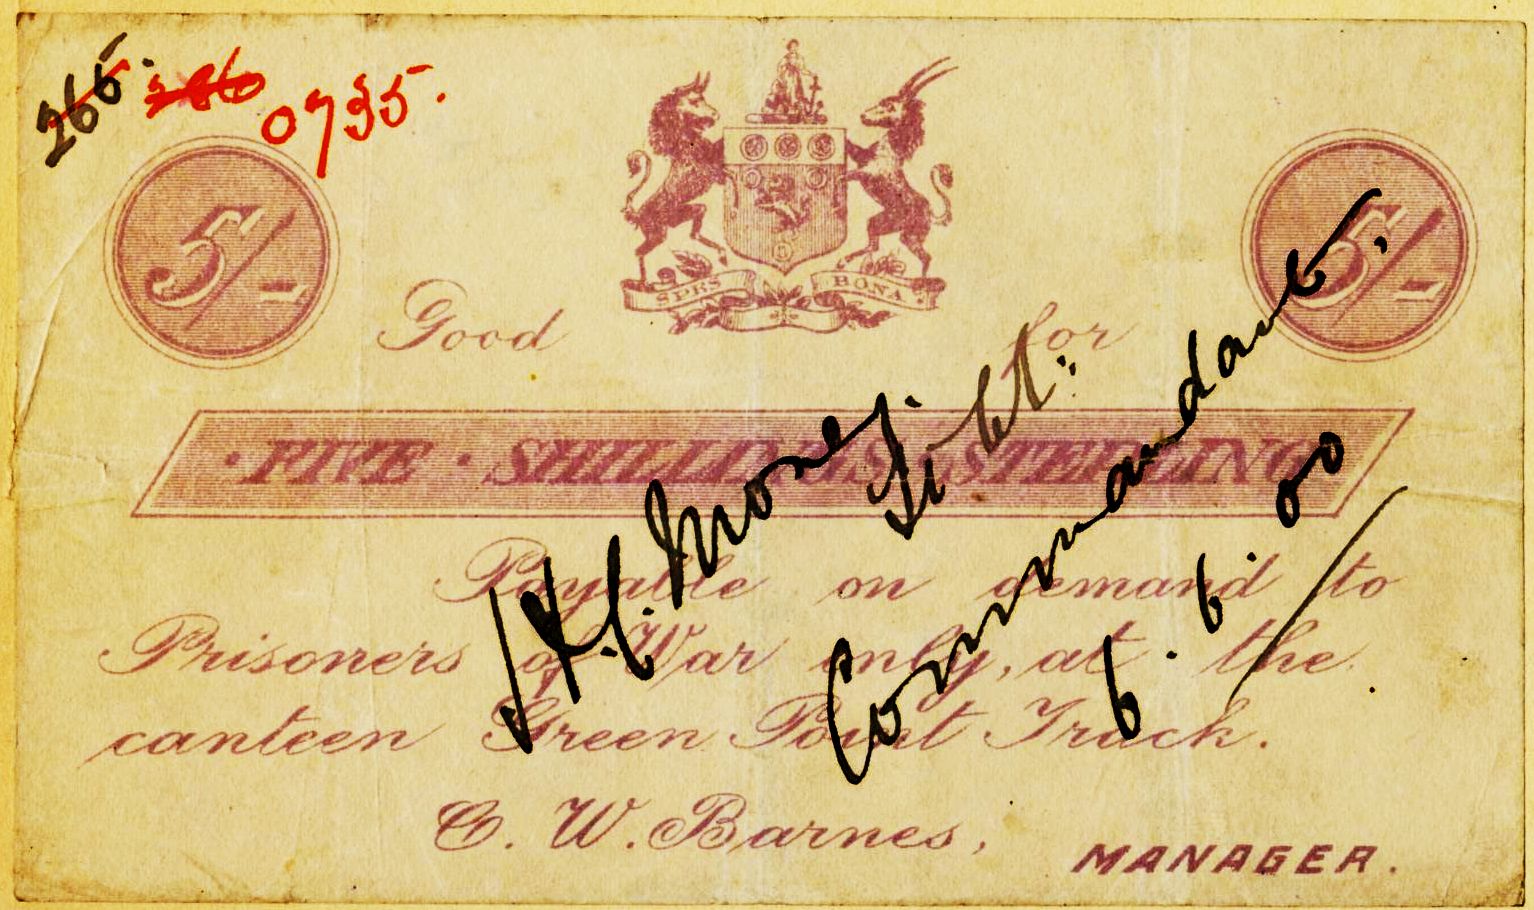 265.
0735.
5/-
5/-
SPES BONA
Good for
· FIVE · SHILLINGS · STERLING ·
Payable on demand to
Prisoners of War only, at the
canteen Green Point Track.
C. W. Barnes,
MANAGER.
Lt. Col:
Commandant.
6.6.00